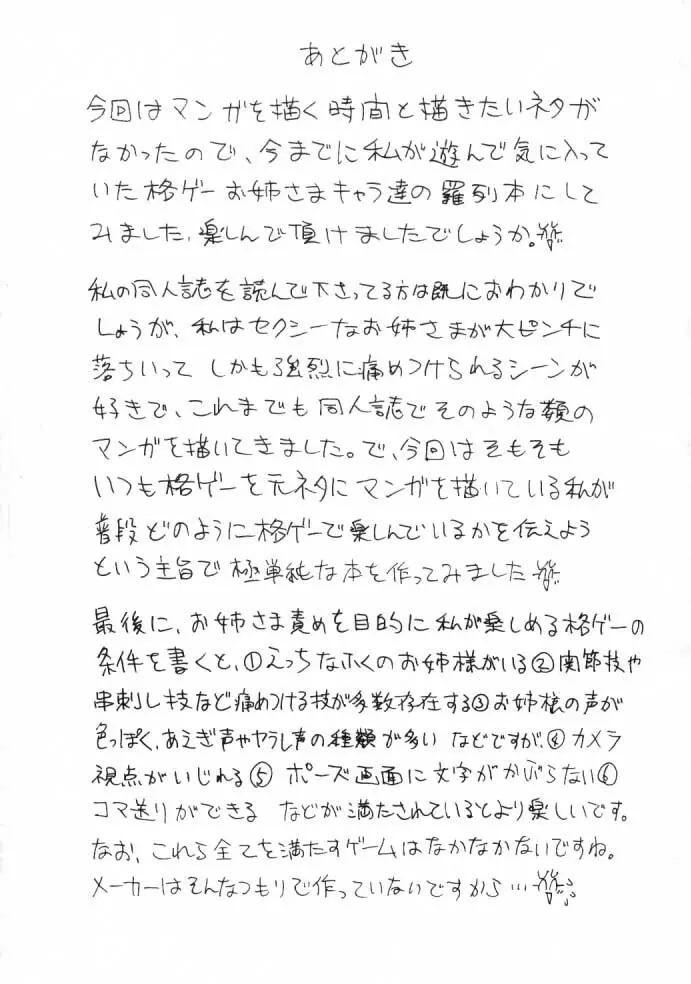 あとがき
今回はマンガを描く時間と描きたいネタが
なかったので、今までに私が遊んで気に入って
いた格ゲーお姉さまキャラ達の羅列本にして
みました。楽しんで頂けましたでしょうか。
私の同人誌を読んで下さってる方は既におわかりで
しょうが、私はセクシーなお姉さまが大ピンチに
落ちいって しかも強烈に痛めつけられるシーンが
好きで、これまでも同人誌でそのような類の
マンガを描いてきました。で、今回はそもそも
いつも格ゲーを元ネタにマンガを描いている私が
普段どのように格ゲーで楽しんでいるかを伝えよう
という主旨で極単純な本を作ってみました
最後に、お姉さま責めを目的に私が楽しめる格ゲーの
条件を書くと、①えっちなふくのお姉様がいる②関節技や
串刺し技など痛めつける技が多数存在する③お姉様の声が
色っぽく、あえぎ声ややらしい声の種類が多い などですが、④カメラ
視点がいじれる⑤ ポーズ画面に文字がかぶらない⑥
コマ送りができる などが満たされているとより楽しいです。
なお、これら全てを満たすゲームはなかなかないですね。
メーカーはそんなつもりで作っていないですから…